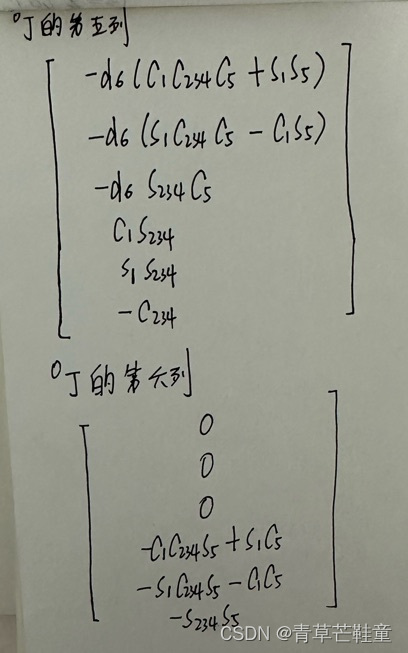 ⁰J的第五列
-d₆(C₁C₂₃₄C₅+S₁S₅)
-d₆(S₁C₂₃₄C₅-C₁S₅)
-d₆S₂₃₄C₅
C₁S₂₃₄
S₁S₂₃₄
-C₂₃₄
⁰J的第六列
0
0
0
-C₁C₂₃₄S₅+S₁C₅
-S₁C₂₃₄S₅-C₁C₅
-S₂₃₄S₅
CSDN @青草芒鞋童